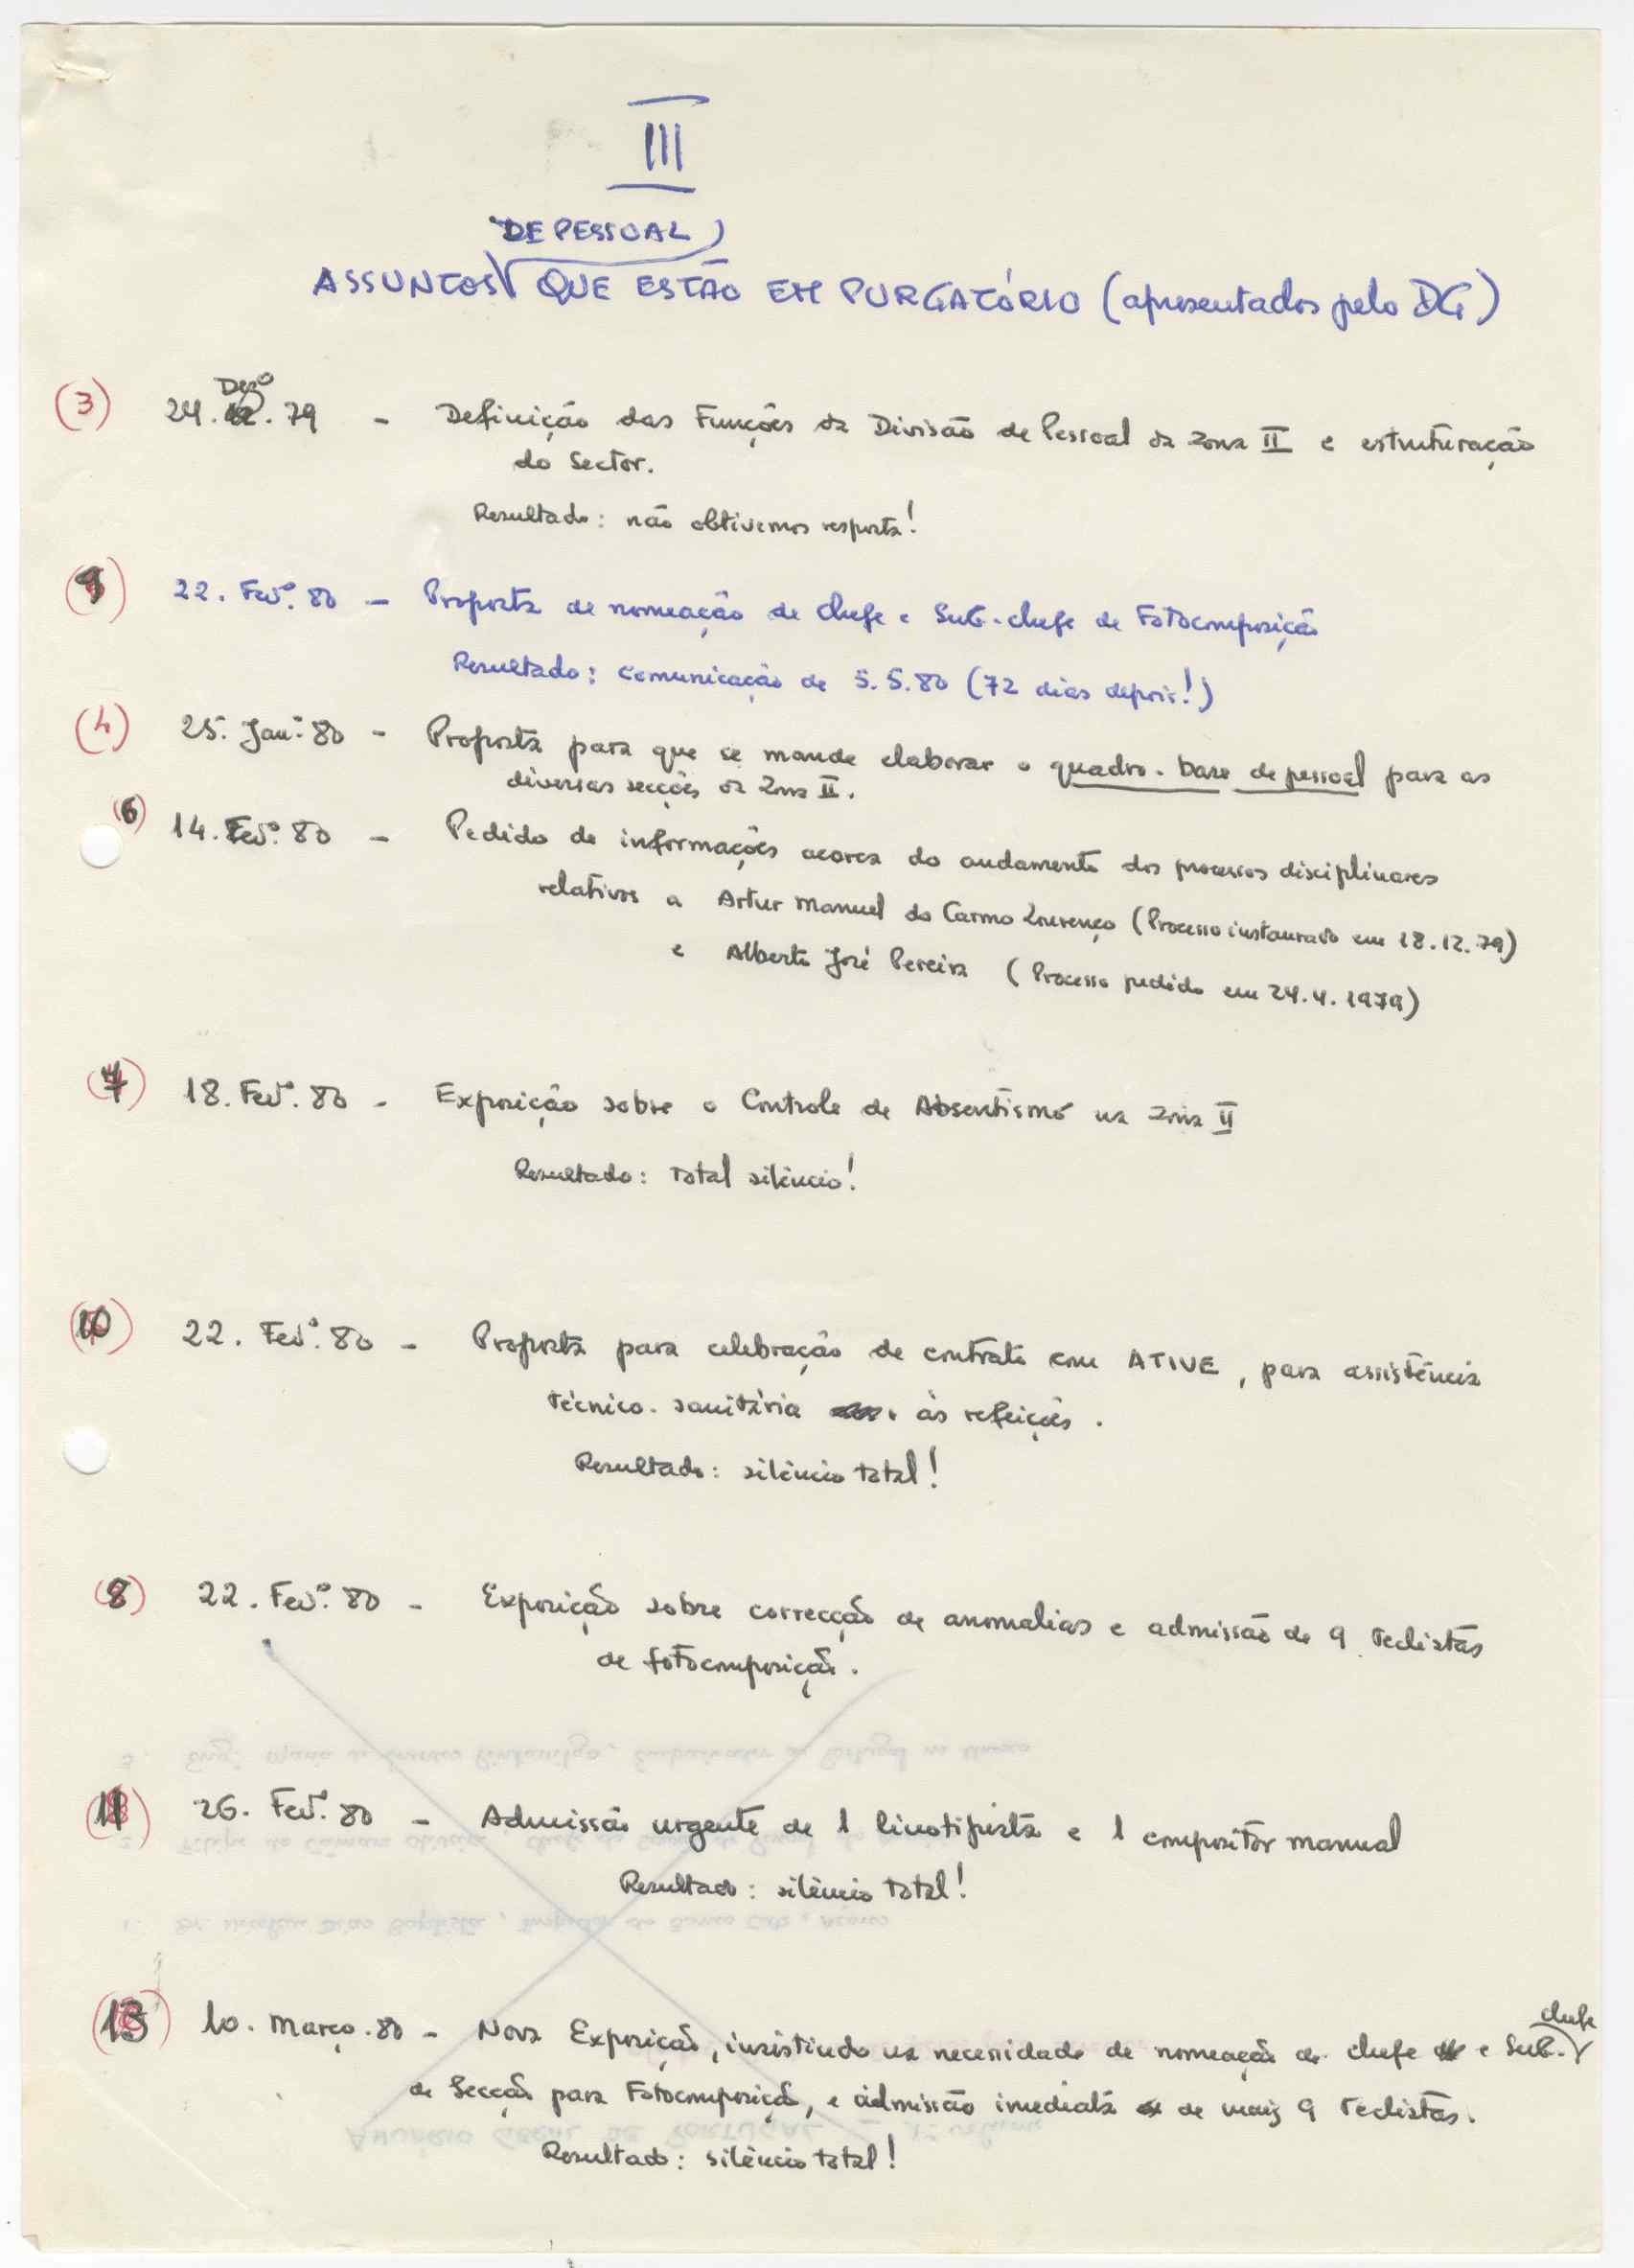 III
DE PESSOAL
ASSUNTOS QUE ESTÃO EM PURGATÓRIO (apresentados pelo DG)
(3) 24. Dezº. 79 - Definição das Funções da Divisão de Pessoal da Zona II e estruturação
do Sector.
Resultado: não obtivemos resposta!
(9) 22. Fevº. 80 - Proposta de nomeação de chefe e Sub-chefe de Fotocomposição
Resultado: comunicação de 5.5.80 (72 dias depois!)
(4) 25. Janº. 80 - Proposta para que se mande elaborar o quadro-base de pessoal para as
diversas secções da Zona II.
(6) 14. Fevº. 80 - Pedido de informações acerca do andamento dos processos disciplinares
relativos a Artur Manuel do Carmo Lourenço (Processo instaurado em 18.12.79)
e Alberto José Pereira (Processo pedido em 24.4.1979)
(7) 18. Fevº. 80 - Exposição sobre o Controle de Absentismo na Zona II
Resultado: Total silêncio!
(10) 22. Fevº. 80 - Proposta para celebração de contrato com ATIVE, para assistência
técnico-sanitária às refeições.
Resultado: silêncio total!
(8) 22. Fevº. 80 - Exposição sobre correcção de anomalias e admissão de 9 teclistas
de fotocomposição.
(11) 26. Fevº. 80 - Admissão urgente de 1 linotipista e 1 compositor manual
Resultado: silêncio total!
(13) 10. Março. 80 - Nova Exposição, insistindo na necessidade de nomeação de chefe e Sub-chefe
de Secção para Fotocomposição, e admissão imediata de mais 9 teclistas.
Resultado: silêncio total!